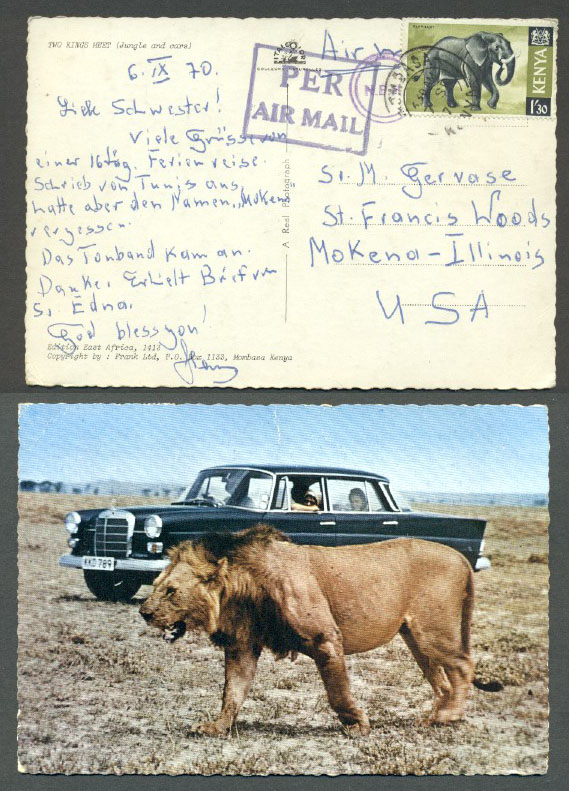 TWO KINGS MEET (Jungle and cars)
6. IX 70.
Air
PER
AIR MAIL
KENYA
1'30
Lieb Schwester!
Viele Grüsse von
einer 16 täg. Ferienreise.
Schrieb von Tunis aus,
hatte aber den Namen „Mokena
vergessen.
Das Tonband kam an.
Danke. Erhielt Brief von
S. Edna.
God bless you!
Sr. M. Gervase
St. Francis Woods
Mokena - Illinois
USA
A Real Photograph
Edition East Africa, 1413
Copyright by : Frank Ltd, P.O. Box 1133, Mombasa Kenya
KKD 789